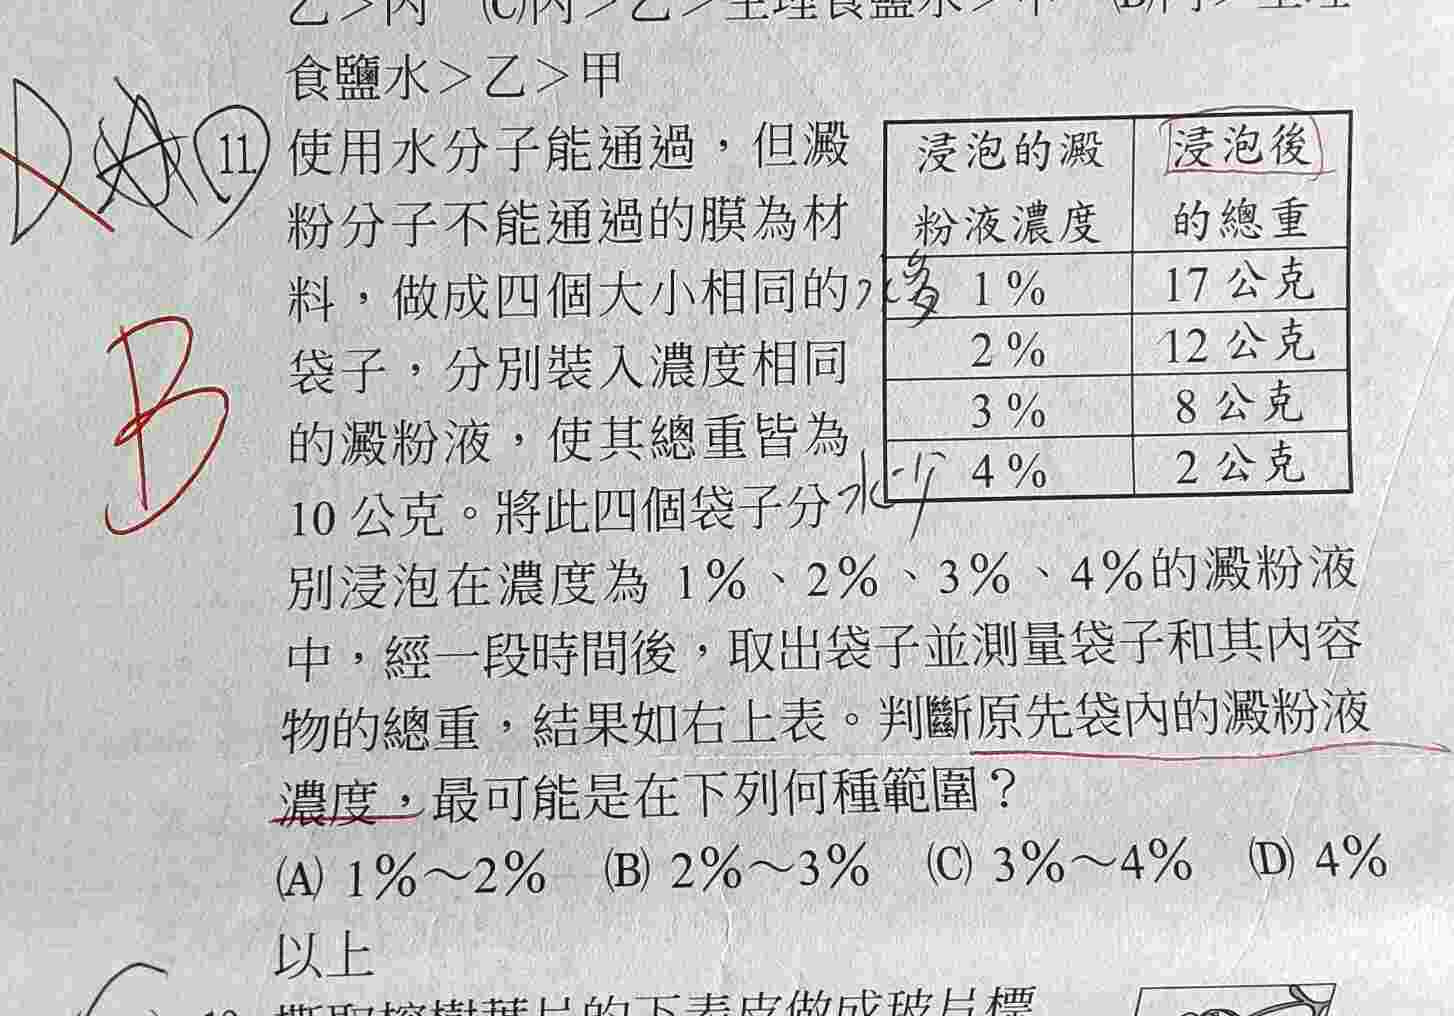 食鹽水>乙>甲
11 使用水分子能通過,但澱
粉分子不能通過的膜為材
料,做成四個大小相同的
袋子,分別裝入濃度相同
的澱粉液,使其總重皆為
10 公克。將此四個袋子分
別浸泡在濃度為 1%、2%、3%、4%的澱粉液
中,經一段時間後,取出袋子並測量袋子和其內容
物的總重,結果如右上表。判斷原先袋內的澱粉液
濃度,最可能是在下列何種範圍?
(A) 1%~2% (B) 2%~3% (C) 3%~4% (D) 4%
以上
浸泡的澱粉液濃度 浸泡後的總重
水多 1% 17 公克
2% 12 公克
3% 8 公克
水少 4% 2 公克
B